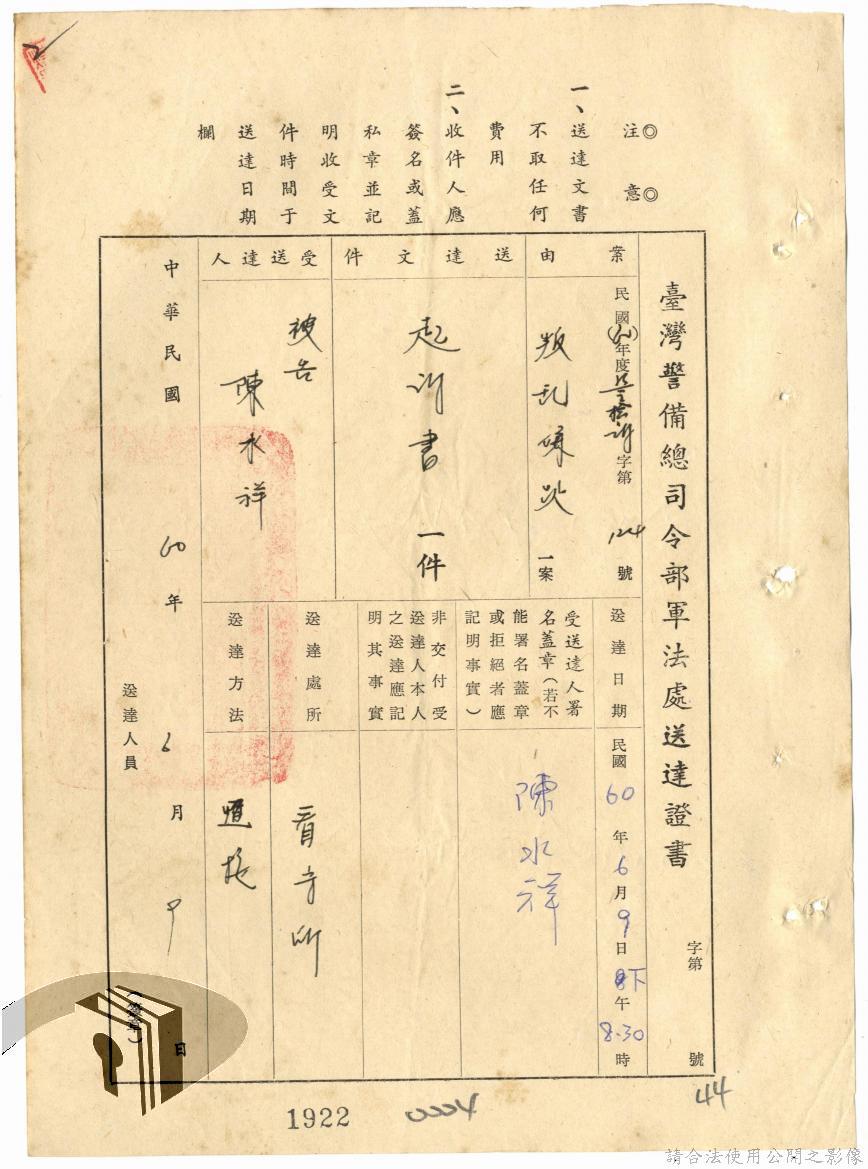 ◎注意◎
一、送達文書
不取任何
費用
二、收件人應
簽名或蓋
私章並記
明收受文
件時間于
送達日期
欄
臺灣警備總司令部軍法處送達證書
字第
號
案由
民國(60)年度
字第
124
號
叛乱嫌疑
一案
送達文件
起訴書
一件
受送達人
被告
陳水祥
送達日期
民國60年6月9日下午8.30時
受送達人署
名蓋章(若不
能署名蓋章
或拒絕者應
記明事實)
陳水祥
非交付受
送達人本人
之送達應記
明其事實
送達處所
看守所
送達方法
直接
中華民國60年6月9日
送達人員
(簽章)
1922
44
請合法使用公開之影像